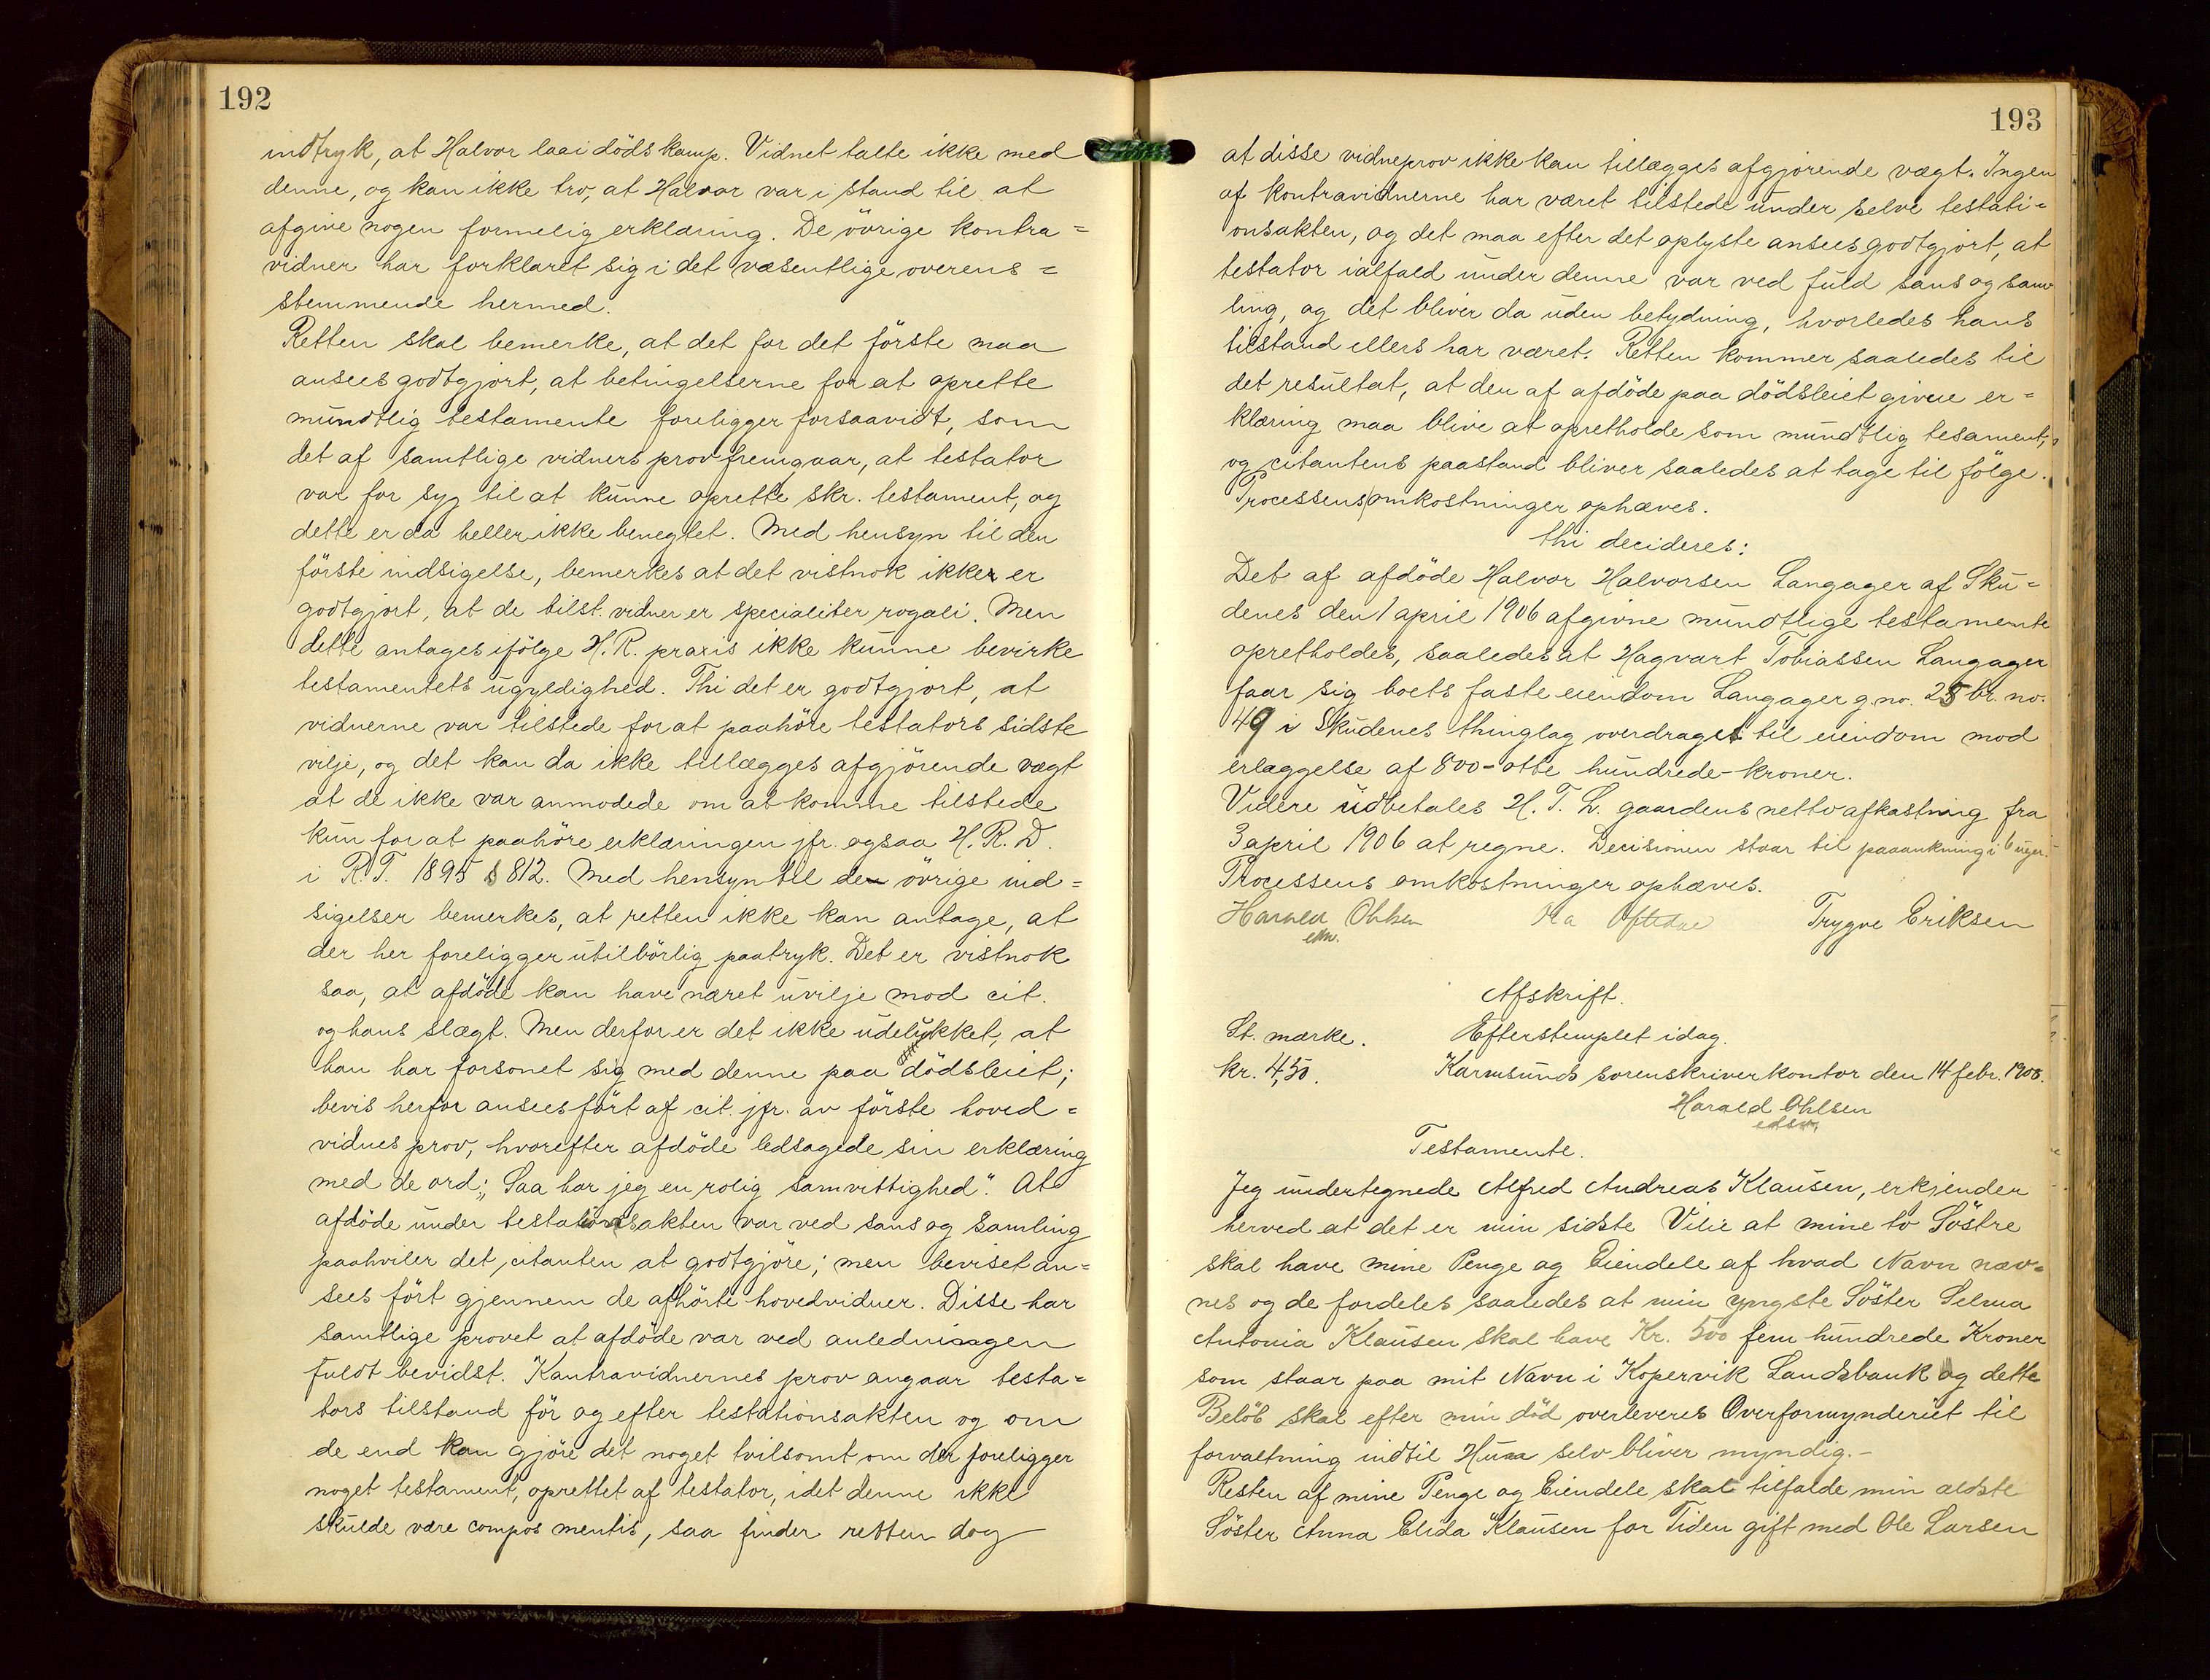 192
indtryk, at Halvor laa i dödskamp. Vidnet talte ikke med
denne, og kan ikke tro, at Halvor var i stand til at
afgive nogen formelig erklæring. De övrige kontra=
vidner har forklaret sig i det væsentlige overens=
stemmende hermed.
Retten skal bemerke, at det for det förste maa
ansees godtgjort, at betingelserne for at oprette
mundtlig testamente foreligger forsaavidt, som
det af samtlige vidners prov fremgaar, at testator
var for syg til at kunne oprette skr. testament, og
dette er da heller ikke benegtet. Med hensyn til den
förste indsigelse, bemerkes at det vistnok ikke er
godtgjort, at de tilst. vidner er specialiter rogati. Men
dette antages ifölge H.R. praxis ikke kunne bevirke
testamentets ugyldighed. Thi det er godtgjort, at
vidnerne var tilstede for at paahöre testators sidste
vilje, og det kan da ikke tillægges afgjörende vægt
at de ikke var anmodede om at komme tilstede
kun for at paahöre erklæringen jfr. ogsaa H. R. D.
i R.T. 1895 s 812. Med hensyn til de övrige ind=
sigelser bemerkes, at retten ikke kan antage, at
der her foreligger utilbörlig paatryk. Det er vistnok
saa, at afdöde kan have næret uvilje mod cit.
og hans slægt. Men derfor er det ikke udelukket, at
han har forsonet sig med denne paa dödsleiet;
bevis herfor ansees fört af cit. jfr. av förste hoved=
vidnes prov, hvorefter afdöde ledsagede sin erklæring
med de ord: „Saa har jeg en rolig samvittighed". At
afdöde under testationsakten var ved sans og samling
paahviler det citanten at godtgjöre; men beviset an=
sees fört gjennem de afhörte hovedvidner. Disse har
samtlige provet at afdöde var ved anledningen
fuldt bevidst. Kontravidnernes prov angaar testa=
tors tilstand för og efter testationsakten og om
de end kan gjöre det noget tvilsomt om der foreligger
noget testament, oprettet af testator, idet denne ikke
skulde være compos mentis, saa finder retten dog
193
at disse vidneprov ikke kan tillægges afgjörende vægt. Ingen
af kontravidnerne har været tilstede under selve testati=
onsakten, og det maa efter det oplyste ansees godtgjort, at
testator ialfald under denne var ved fuld sans og sam
ling, og det bliver da uden betydning, hvorledes hans
tilstand ellers har været. Retten kommer saaledes til
det resultat, at den af afdöde paa dödsleiet givne er=
klæring maa blive at opretholde som mundtlig tesament,
og citantens paastand bliver saaledes at tage til fölge.
Processens omkostninger ophæves.
thi decideres:
Det af afdöde Halvor Halvorsen Langager af Sku=
denes den 1 april 1906 afgivne mundtlige testamente
opretholdes, saaledes at Hagvart Tobiassen Langager
faar sig boets faste eiendom Langager g.no. 25 br. no.
49 i Skudenes thinglag overdraget til eiendom mod
erlæggelse af 800 - otte hundrede - kroner.
Videre udbetales H. T. L. gaardens netto afkastning fra
3 april 1906 at regne. Decisionen staar til paaankning i 6 uger.
Processens omkostninger ophæves.
Harald Ohlsen Ola Oftedal Trygve Eriksen
Afskrift.
St. mærke. Efterstemplet idag.
kr. 4,50. Karmsunds sorenskriverkontor den 14 febr. 1908.
Harald Ohlsen
edsv.
Testamente.
Jeg undertegnede Alfred Andreas Klausen, erkjender
herved at det er min sidste Vilie at mine to Söstre
skal have mine Penge og Eiendele af hvad Navn næv=
nes og de fordeles saaledes at min yngste Söster Selma
Antonia Klausen skal have Kr. 500 fem hundrede Kroner
som staar paa mit Navn i Kopervik Landsbank og dette
Belöb skal efter min död overleveres Overformynderiet til
forvaltning indtil Hun selv bliver myndig.-
Resten af mine Penge og Eiendele skal tilfalde min ældste
Söster Anna Elida Klausen for Tiden gift med Ole Larsen